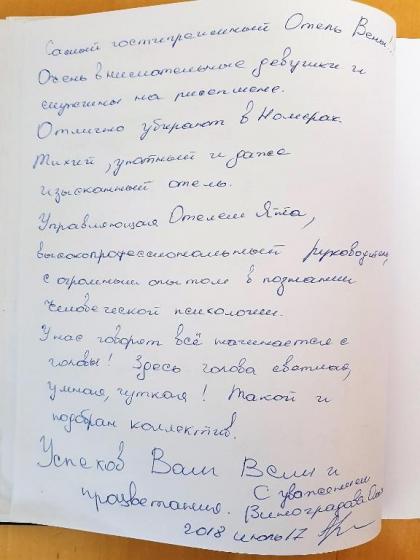 Самый гостиприимный Отель Вены!
Очень внимательные девушки и
мужчины на ресепшене.
Отлично убирают в Номерах.
Тихий, уютный и даже
изысканный отель.
Управляющая Отелем Ята,
высокопрофессиональный руководитель,
с огромным опытом в познании
человеческой психологии.
У нас говорят всё начинается с
головы! Здесь голова светлая,
умная, чуткая! Такой и
подобран коллектив.
Успехов Вам Всем и
процветания. С уважением
Виноградова
2018 июль 17